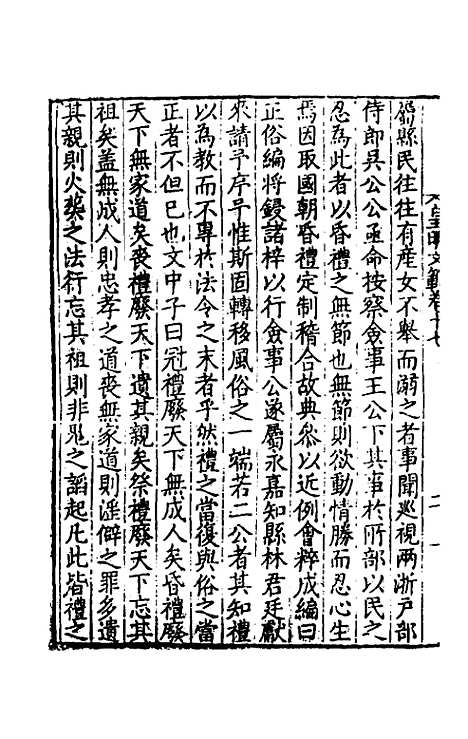 皇明文範卷十七
屬縣民往往有產女不舉而溺之者事聞廵視兩浙戸部
侍郎吳公公亟命按察僉事王公下其事於所部以民之
忍為此者以昏禮之無節也無節則欲動情勝而忍心生
焉因取國朝昏禮定制稽合故典叅以近例會粹成編曰
正俗編將鋟諸梓以行僉事公遂屬永嘉知縣林君廷獻
來請予序予惟斯固轉移風俗之一端若二公者其知禮
以為教而不專於法令之末者乎然禮之當復與俗之當
正者不但巳也文中子曰冠禮廢天下無成人矣昏禮廢
天下無家道矣喪禮廢天下遺其親矣祭禮廢天下忘其
祖矣盖無成人則忠孝之道喪無家道則滛僻之罪多遺
其親則火葬之法行忘其祖則非鬼之謟起凡此皆禮之